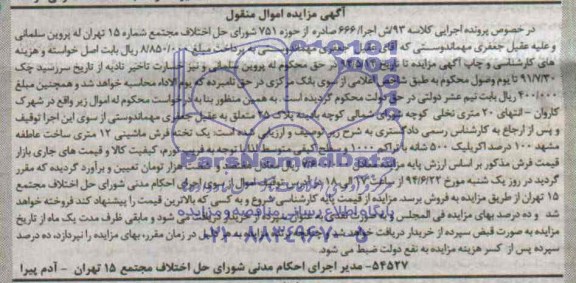 آگهی مزایده اموال منقول
در خصوص پرونده اجرایی کلاسه ۹۳/ش اجرا/۶۶۶ صادره از حوزه ۷۵۱ شورای حل اختلاف مجتمع شماره ۱۵ تهران له پروین سلمانی
و علیه عقیل جعفری مهماندوستی که آقای عقیل جعفری مهماندوستی به پرداخت مبلغ ۸/۸۵۰/۰۰۰ ریال بابت اصل خواسته و هزینه
های کارشناسی و چاپ آگهی مزایده تا در حق محکوم له پروین سلمانی و نیز خسارت تاخیر تادیه از تاریخ سررسید چک
۹۱۷/۳۰ تا یوم وصول محکوم به طبق شاخص اعلامی از سوی بانک مرکزی در حق نامبرده که یوم الاداء محاسبه خواهد شد و همچنین مبلغ
۴۰۰/۰۰۰ ریال بابت نیم عشر دولتی در حق دولت محکوم گردیده است. به همین منظور بنا به درخواست محکوم له اموال زیر واقع در شهرک
کاروان - انتهای ۲۰ متری نخلی کوچه شورای شمالی کوچه پلاک ۲۵ متعلق به عقیل جعفری مهماندوستی از سوی این اجرا توقیف
و پس از ارجاع به کارشناس رسمی دادگستری به شرح زیر توصیف و ارزیابی شده است: یک تخته فرش ماشینی ۱۲ متری ساخت عاطفه
مشهد ۱۰۰ درصد اکریلیک ۵۰۰ شانه با تراکم ۱۰۰۰ و سطح کیفی متوسط لذا با توجه به فرسودگی، کیفیت کالا و قیمت های جاری بازار
قیمت فرش مذکور بر اساس ارزش پایه مزایده هزار تومان تعیین و برآورد گردیده که مقرر
گردید در روز یک شنبه مورخ ۹۴/۶/۲۲ از ساعت الی ۱۸ اموال از سوی اجرای احکام مدنی شورای حل اختلاف مجتمع
۱۵ تهران از طریق مزایده به فروش برسد. مزایده از قیمت پایه کارشناسی شروع و به کسی که بالاترین قیمت را پیشنهاد کند فروخته خواهد
شد و ده درصد بهای مزایده فی المجلس و شود و مابقی ظرف مدت یک ماه از تاریخ
مزایده به صورت قبض سپرده از خریدار دریافت خواهد شد در زمان مقرر، بهای مزایده را نپردازد، ده درصد
سپرده پس از کسر هزینه مزایده به نفع دولت ضبط می شود.
۵۴۵۲۷- مدیر اجرای احکام مدنی شورای حل اختلاف مجتمع ۱۵ تهران - آدم پیرا
ParsNamadData
پایگاه اطلاع رسانی مناقصه و مزایده
۰۲۱-۸۸۳۴۹۶۷۰-۵